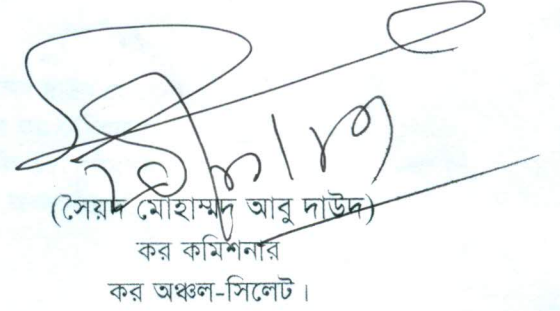 (সৈয়দ মোহাম্মদ আবু দাউদ)
কর কমিশনার
কর অঞ্চল-সিলেট।